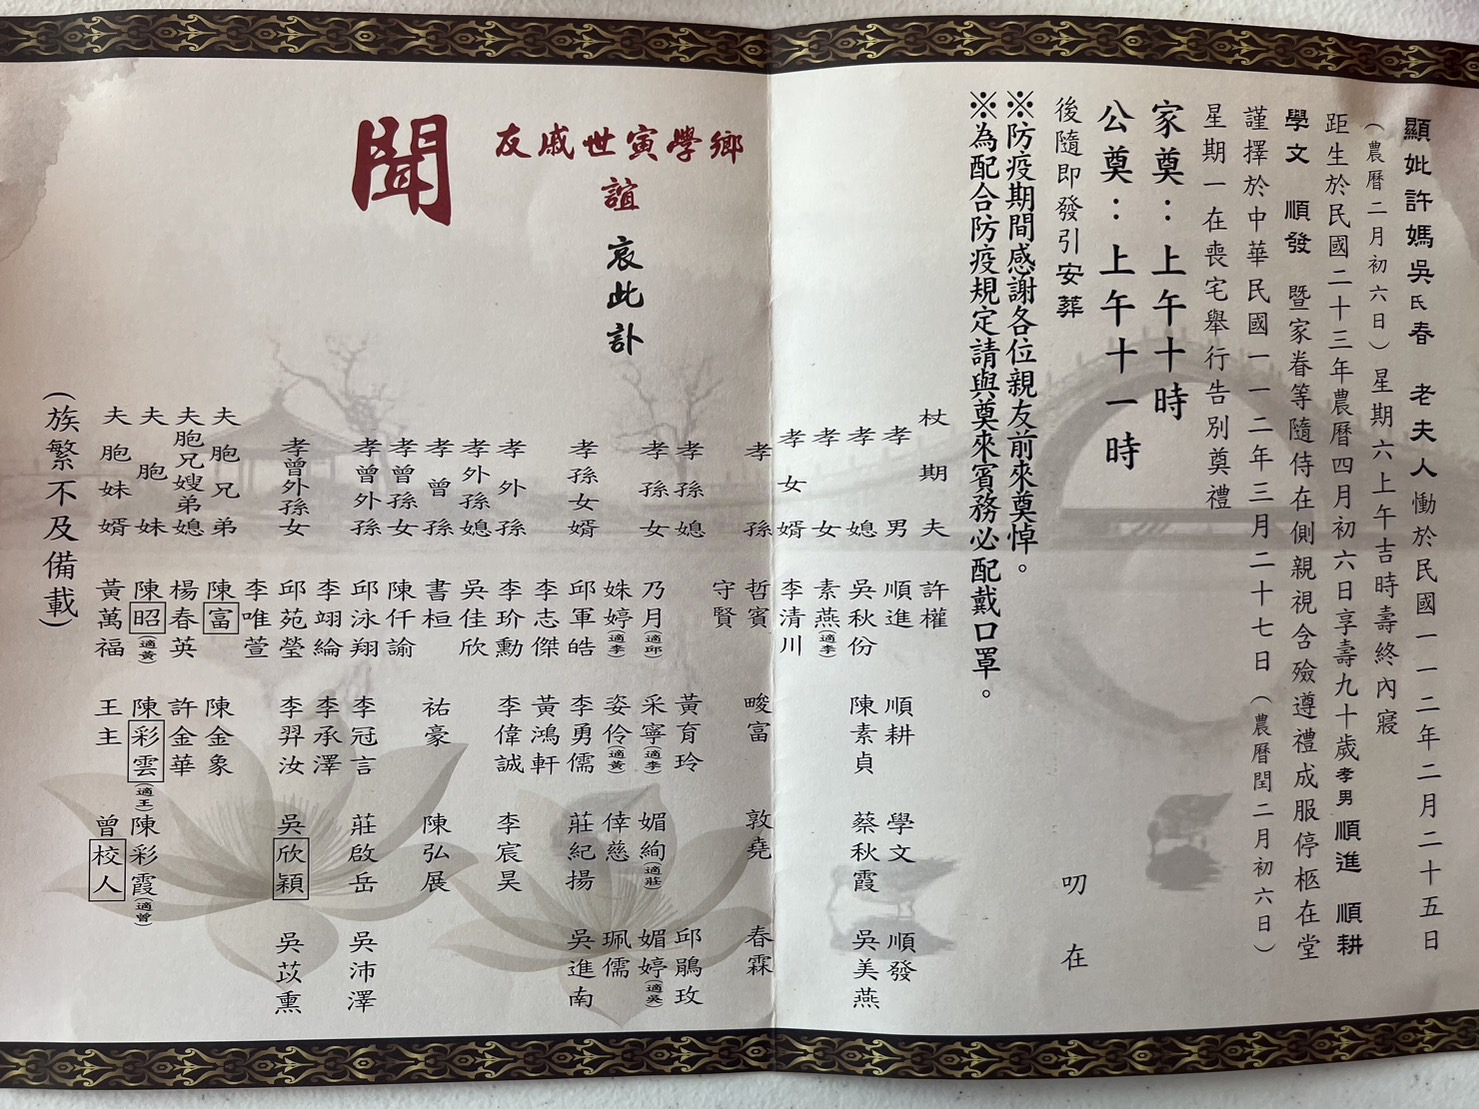 顯妣許媽吳氏春　老夫人慟於民國一一二年二月二十五日
（農曆二月初六日）星期六上午吉時壽終內寢
距生於民國二十三年農曆四月初六日享壽九十歲孝男順進　順耕
學文　順發　暨家眷等隨侍在側親視含殮遵禮成服停柩在堂
謹擇於中華民國一一二年三月二十七日（農曆閏二月初六日）
星期一在喪宅舉行告別奠禮
家奠：上午十時
公奠：上午十一時
後隨即發引安葬　叨在
※防疫期間感謝各位親友前來奠悼。
※為配合防疫規定請與奠來賓務必配戴口罩。
鄉學寅世戚友
誼　哀此訃
聞
杖期夫　許權
孝男　順進　順耕　學文　順發
孝媳　吳秋份　陳素貞　蔡秋霞　吳美燕
孝女　素燕（適李）
孝女婿　李清川
孝孫　哲賓　畯富　敦堯　春霖
守賢
孝孫媳　黃育玲　邱鵑玫
孝孫女　乃月（適邱）　采寧（適李）　媚絢（適莊）　媚婷（適吳）
姝婷（適李）　姿伶（適黃）　倖慈　珮儒
孝孫女婿　邱軍皓　李勇儒　莊紀揚　吳進南
李志傑　黃鴻軒
孝外孫　李玠勳　李偉誠　李宸昊
孝外孫媳　吳佳欣
孝曾孫　書桓　祐豪　陳弘展
孝曾孫女　陳仟諭
孝曾外孫　邱泳翔　李冠言　莊啟岳　吳沛澤
李翊綸　李承澤
孝曾外孫女　邱苑瑩　李羿汝　吳欣穎　吳苡熏
李唯萱
夫胞兄弟　陳富　陳金象
夫胞兄嫂弟媳　楊春英　許金華
夫胞妹　陳昭（適黃）　陳彩雲（適王）　陳彩霞（適曾）
夫胞妹婿　黃萬福　王主　曾校人
（族繁不及備載）